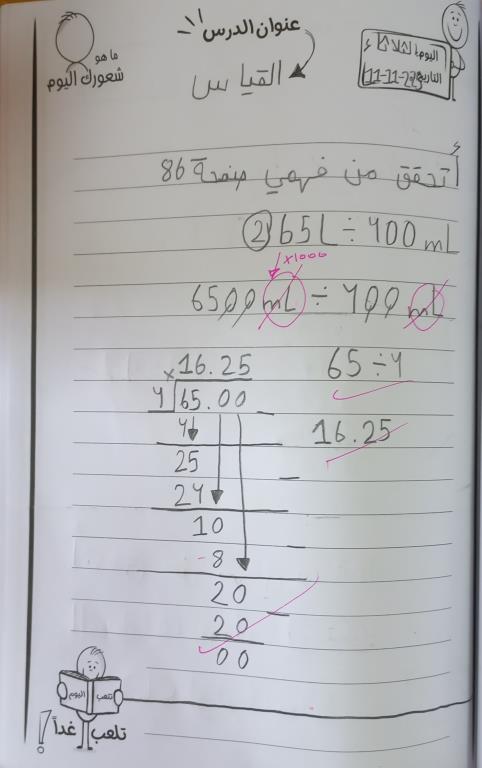 عنوان الدرس
ما هو شعورك اليوم
القياس
اليوم: الثلاثاء
التاريخ: 11-11-22
أتحقق من فهمي صفحة 86
② 65L ÷ 400 mL
×1000
6500 mL ÷ 400 mL
65 ÷ 4
16.25
16.25
4 65.00
4
25
24
10
- 8
20
20
00
تلعب اليوم
تلعب غداً!